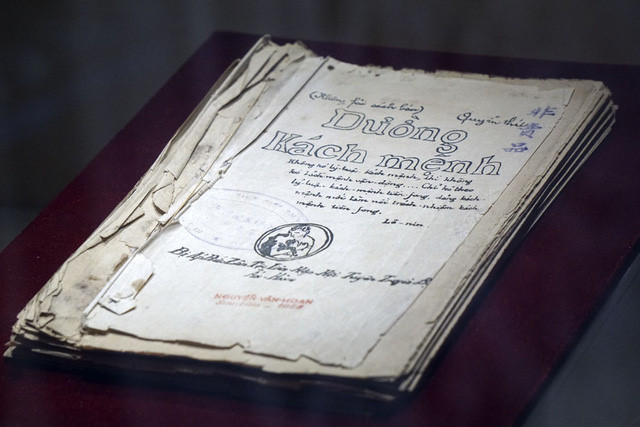 (Không fải sách bán)
Quyển thứ
非賣品
Đường
Kách mệnh
Không có lý luận kách mệnh thì không
có kách mệnh vận động.... Chỉ có theo
lý luận kách mệnh tiền fong, đảng kách
mệnh mới làm nổi trách nhiệm kách
mệnh tiền fong.
Lê-nin
NGUYỄN VĂN-HOAN